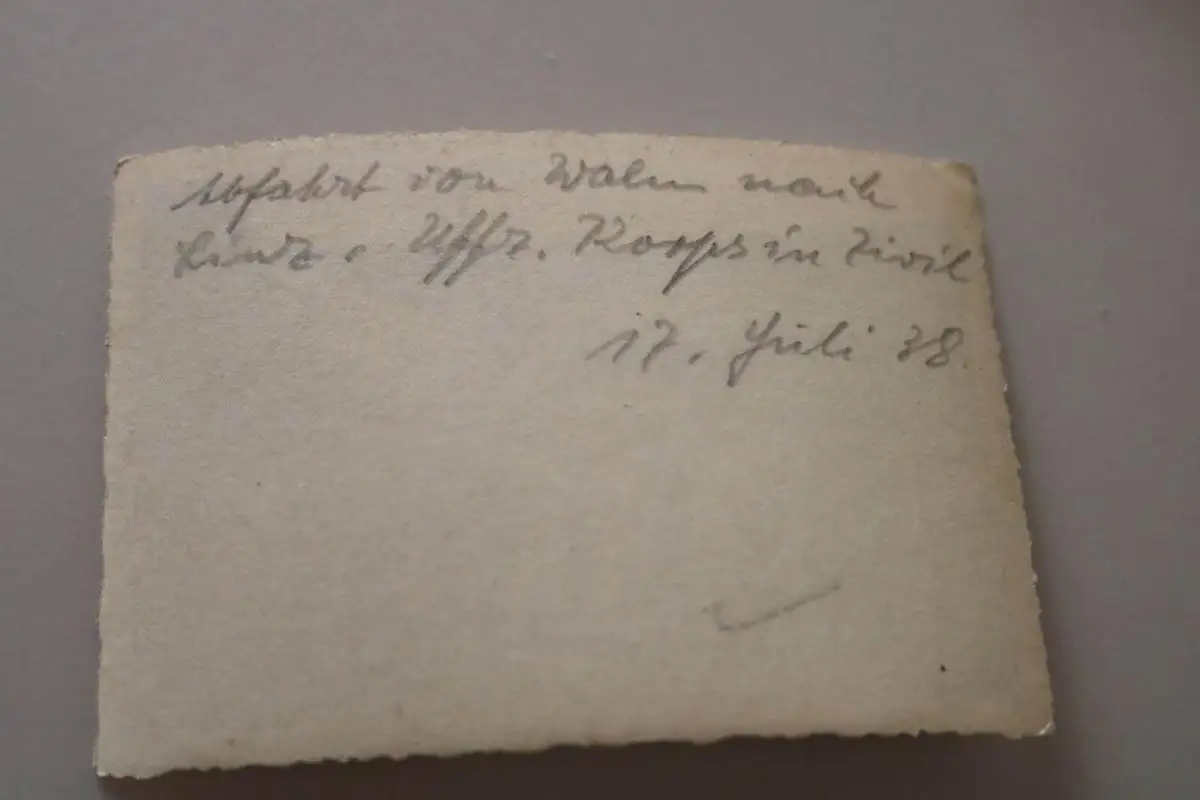 Abfahrt von Waln nach
Linz. Uffz. Korps in Zivil
17. Juli 38.